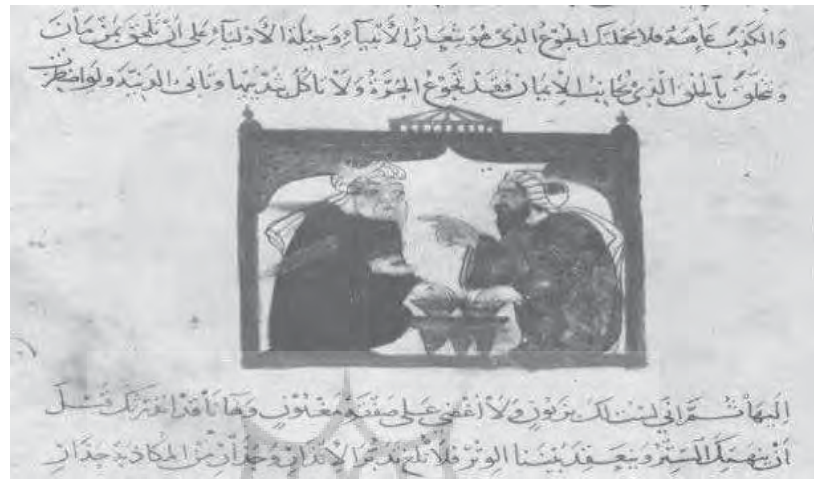 وَالكَذِبُ عَاهَةٌ فلا يَحملنَّكَ الجُوعُ الذِي هُوَ شِعَارُ الأَنبِيَآءِ وَحِليَةُ الأَولِيَآءِ عَلى أَنْ تَلْحَقَ بمَنْ مَانَ
وَتَتخلَّقَ بِالخُلُقِ الَّذِي يُجَانِبُ الإِيمَانَ فَقَدْ تَجُوعُ الحُرَّةُ وَلاَ تَاكُلُ بثَدْيَيهَا وَتَابَى الدنِيَّةَ ولَوِ اضطُرَّتْ
اِلَيهَا ثُمَّ إِنِّي لَستُ لَكَ بِزَبُونٍ وَلاَ أُغضِي عَلى صَفْقَةِ مَغْبُونٍ وَهَا أَنَا قَدْ أَنذَرتُكَ قَبْلَ
اَنْ يَنهَتِكَ السِّتْرُ وَيَنعَقِدَ بَيْنَنَا الوِتْرُ فَلاَ تُلْغِ تَدَبُّرَ الإنذَارِ وَحَذَارِ مِنَ المُكَاذَبَةِ حَذَارِ